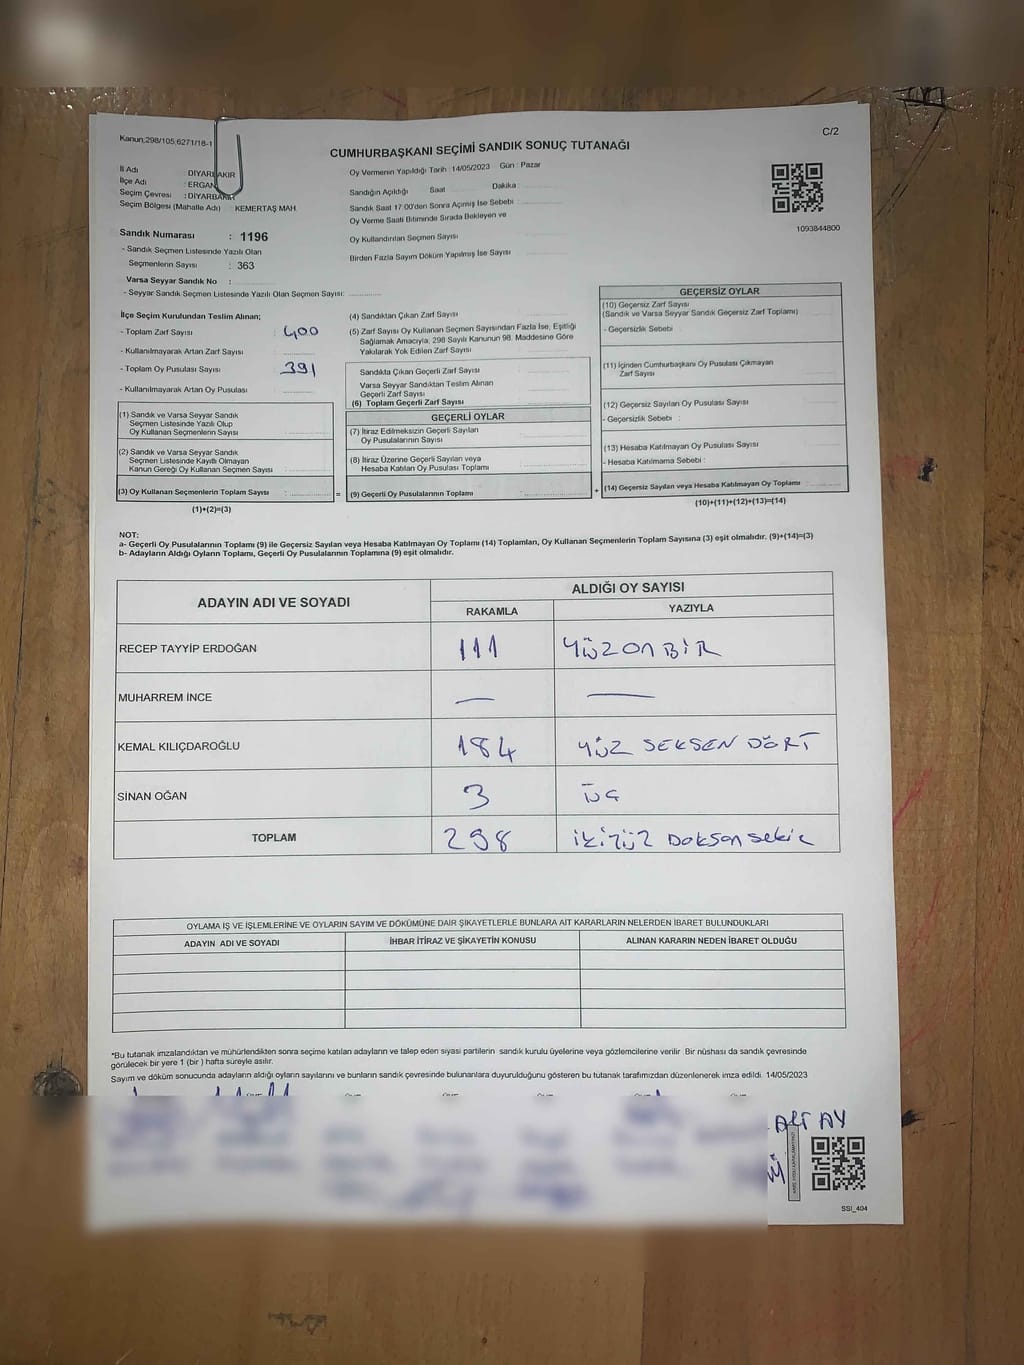 Kanun;298/105,6271/18-1
C/2
CUMHURBAŞKANI SEÇİMİ SANDIK SONUÇ TUTANAĞI
İl Adı : DİYARBAKIR
İlçe Adı : ERGANİ
Seçim Çevresi : DİYARBAKIR
Seçim Bölgesi (Mahalle Adı) : KEMERTAŞ MAH.
Sandık Numarası : 1196
- Sandık Seçmen Listesinde Yazılı Olan
Seçmenlerin Sayısı : 363
Varsa Seyyar Sandık No :
- Seyyar Sandık Seçmen Listesinde Yazılı Olan Seçmen Sayısı:
Oy Vermenin Yapıldığı Tarih : 14/05/2023 Gün : Pazar
Sandığın Açıldığı Saat Dakika :
Sandık Saat 17:00'den Sonra Açılmış İse Sebebi :
Oy Verme Saati Bitiminde Sırada Bekleyen ve
Oy Kullandırılan Seçmen Sayısı
Birden Fazla Sayım Döküm Yapılmış İse Sayısı
1093844800
İlçe Seçim Kurulundan Teslim Alınan;
- Toplam Zarf Sayısı : 400
- Kullanılmayarak Artan Zarf Sayısı
- Toplam Oy Pusulası Sayısı : 391
- Kullanılmayarak Artan Oy Pusulası
(1) Sandık ve Varsa Seyyar Sandık
Seçmen Listesinde Yazılı Olup
Oy Kullanan Seçmenlerin Sayısı
(2) Sandık ve Varsa Seyyar Sandık
Seçmen Listesinde Kayıtlı Olmayan
Kanun Gereği Oy Kullanan Seçmen Sayısı
(3) Oy Kullanan Seçmenlerin Toplam Sayısı : =
(1)+(2)=(3)
(4) Sandıktan Çıkan Zarf Sayısı
(5) Zarf Sayısı Oy Kullanan Seçmen Sayısından Fazla İse, Eşitliği
Sağlamak Amacıyla, 298 Sayılı Kanunun 98. Maddesine Göre
Yakılarak Yok Edilen Zarf Sayısı
Sandıkta Çıkan Geçerli Zarf Sayısı
Varsa Seyyar Sandıktan Teslim Alınan
Geçerli Zarf Sayısı
(6) Toplam Geçerli Zarf Sayısı
GEÇERLİ OYLAR
(7) İtiraz Edilmeksizin Geçerli Sayılan
Oy Pusulalarının Sayısı
(8) İtiraz Üzerine Geçerli Sayılan veya
Hesaba Katılan Oy Pusulası Toplamı
(9) Geçerli Oy Pusulalarının Toplamı +
GEÇERSİZ OYLAR
(10) Geçersiz Zarf Sayısı
(Sandık ve Varsa Seyyar Sandık Geçersiz Zarf Toplamı)
- Geçersizlik Sebebi :
(11) İçinden Cumhurbaşkanı Oy Pusulası Çıkmayan
Zarf Sayısı
(12) Geçersiz Sayılan Oy Pusulası Sayısı
- Geçersizlik Sebebi :
(13) Hesaba Katılmayan Oy Pusulası Sayısı
- Hesaba Katılmama Sebebi :
(14) Geçersiz Sayılan veya Hesaba Katılmayan Oy Toplamı
(10)+(11)+(12)+(13)=(14)
NOT:
a- Geçerli Oy Pusulalarının Toplamı (9) ile Geçersiz Sayılan veya Hesaba Katılmayan Oy Toplamı (14) Toplamları, Oy Kullanan Seçmenlerin Toplam Sayısına (3) eşit olmalıdır. (9)+(14)=(3)
b- Adayların Aldığı Oyların Toplamı, Geçerli Oy Pusulalarının Toplamına (9) eşit olmalıdır.
ADAYIN ADI VE SOYADI
ALDIĞI OY SAYISI
RAKAMLA YAZIYLA
RECEP TAYYİP ERDOĞAN 111 YÜZ ON BİR
MUHARREM İNCE — —
KEMAL KILIÇDAROĞLU 184 YÜZ SEKSEN DÖRT
SİNAN OĞAN 3 ÜÇ
TOPLAM 298 İkiYüz Doksan sekiz
OYLAMA İŞ VE İŞLEMLERİNE VE OYLARIN SAYIM VE DÖKÜMÜNE DAİR ŞİKAYETLERLE BUNLARA AİT KARARLARIN NELERDEN İBARET BULUNDUKLARI
ADAYIN ADI VE SOYADI İHBAR İTİRAZ VE ŞİKAYETİN KONUSU ALINAN KARARIN NEDEN İBARET OLDUĞU
*Bu tutanak imzalandıktan ve mühürlendikten sonra seçime katılan adayların ve talep eden siyasi partilerin sandık kurulu üyelerine veya gözlemcilerine verilir. Bir nüshası da sandık çevresinde
görülecek bir yere 1 (bir ) hafta süreyle asılır.
Sayım ve döküm sonucunda adayların aldığı oyların sayılarını ve bunların sandık çevresinde bulunanlara duyurulduğunu gösteren bu tutanak tarafımızdan düzenlenerek imza edildi. 14/05/2023
ALTAY
SSI_404